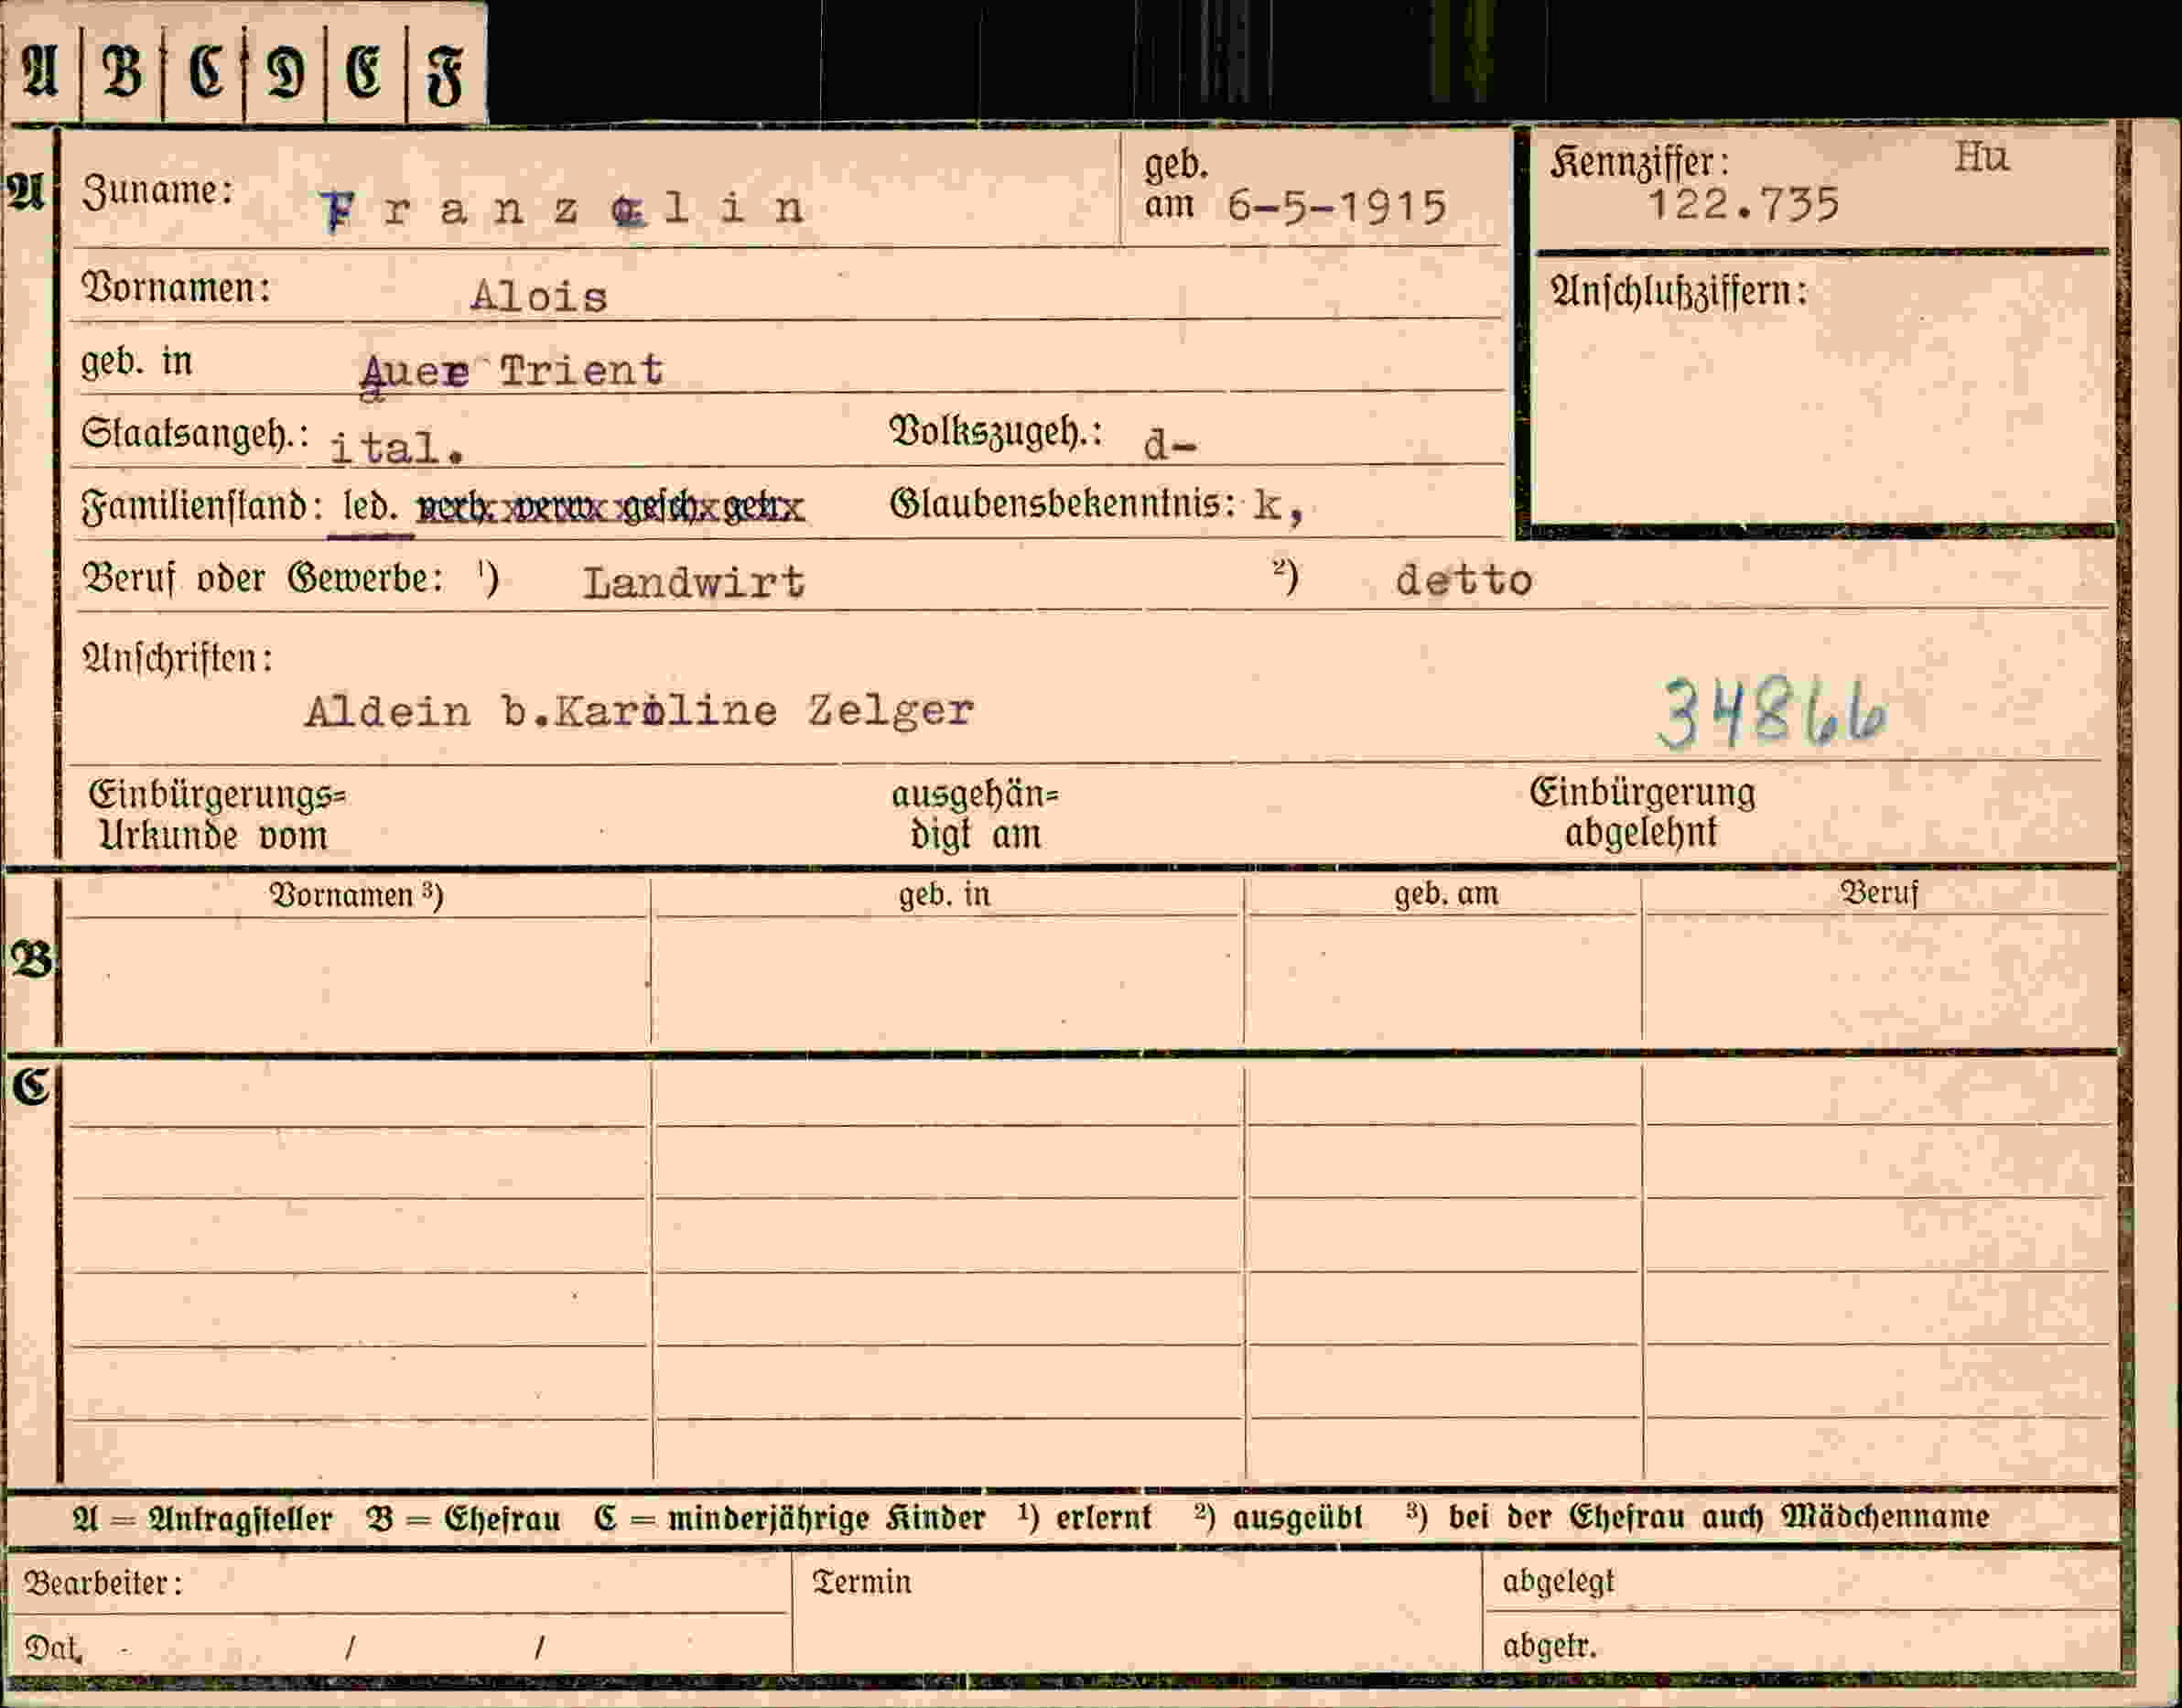 A B C D E F
A Zuname: Franzelin geb. am 6-5-1915 Kennziffer: Hu 122.735
Vornamen: Alois Anschlußziffern:
geb. in Auer Trient
Staatsangeh.: ital. Volkszugeh.: d-
Familienstand: led. verh. verw. gesch. getr. Glaubensbekenntnis: k,
Beruf oder Gewerbe: ¹) Landwirt ²) detto
Anschriften:
Aldein b.Karoline Zelger 34866
Einbürgerungs= ausgehän= Einbürgerung
Urkunde vom digt am abgelehnt
Vornamen ³) geb. in geb. am Beruf
B
C
A = Antragsteller B = Ehefrau C = minderjährige Kinder ¹) erlernt ²) ausgeübt ³) bei der Ehefrau auch Mädchenname
Bearbeiter: Termin abgelegt
Dat. / / abgetr.